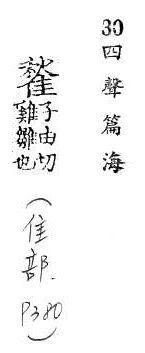 30四聲篇海
子由切
雞雛也
(隹部. P380)